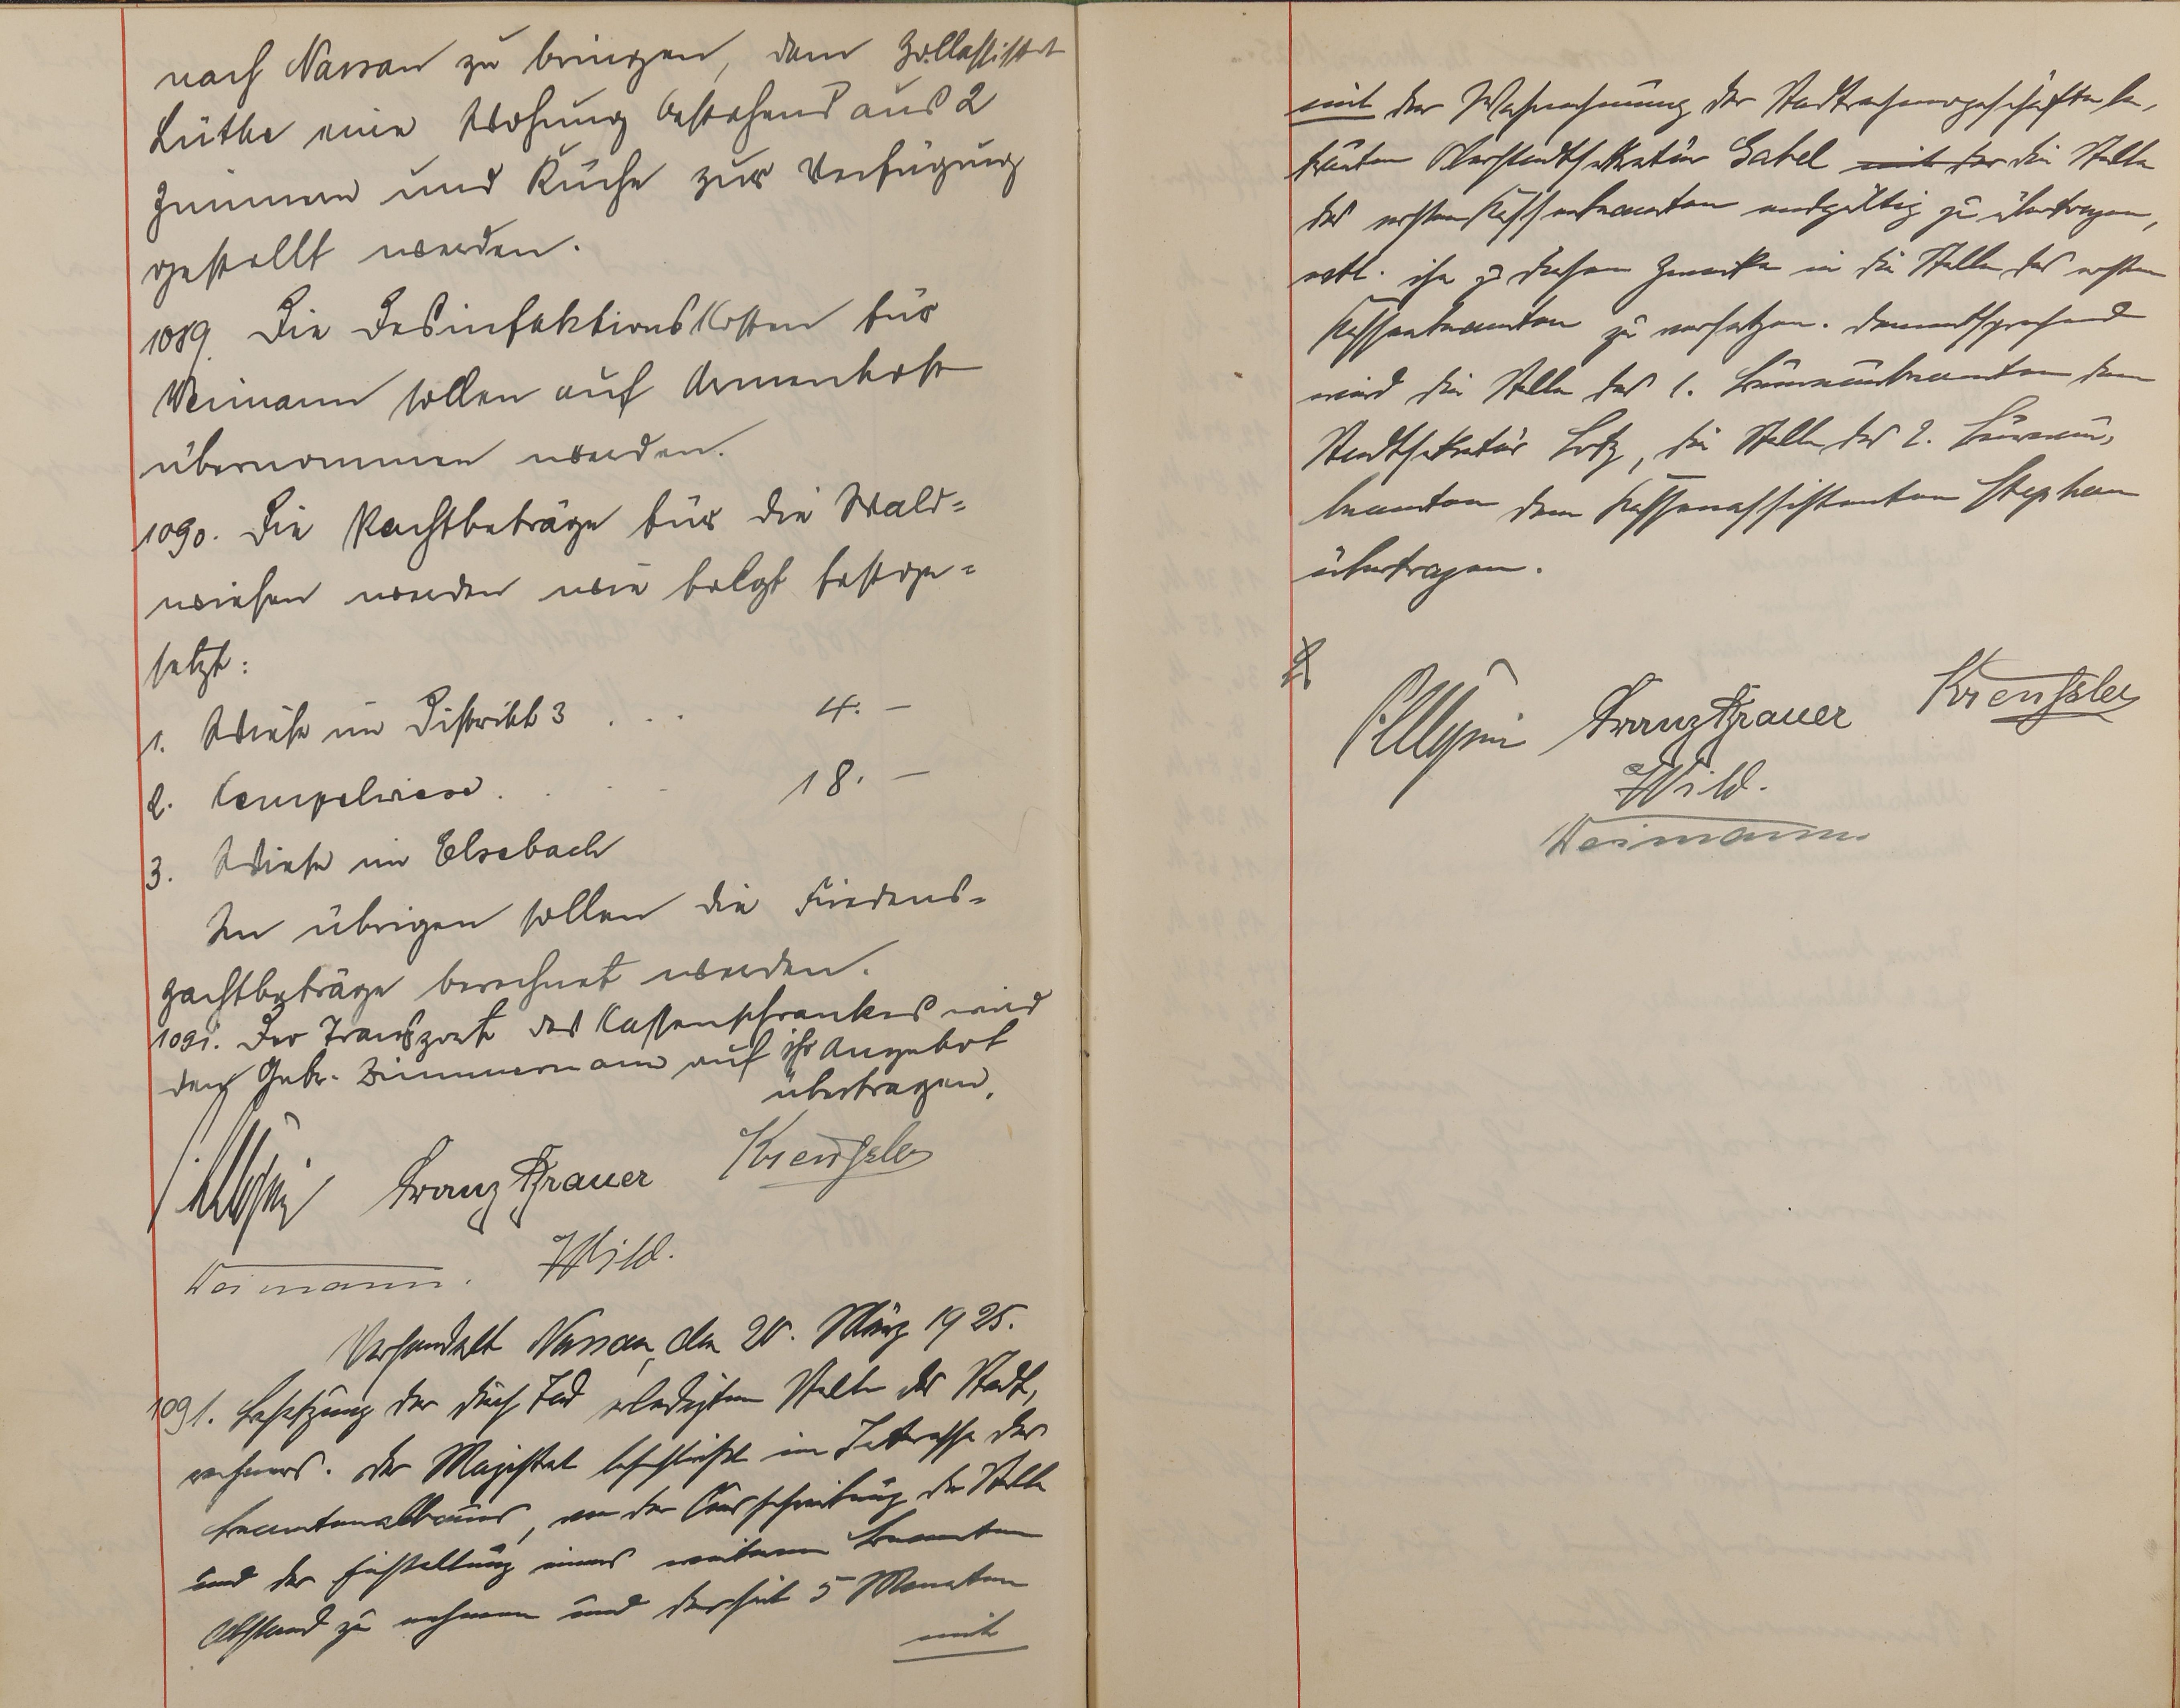 nach Nassau zu bringen, dem Zollassistent
Lüthe eine Wohung bestehend aus 2
Zimmern und Küche zur Verfügung
gestellt werden.
1089. Die Desinfektionskosten für
Weimann sollen auf Armenkosten
übernommen werden.
1090. Die Pachtbeträge für die Wald=
wiesen werden wie folgt festge=
setzt:
1. Wiese im Distrikt 3 . . . 4. –
2. Tempelwiese . . . . 18. –
3. Wiese im Elsebach
Im übrigen sollen die Friedens-
pachtbeträge berechnet werden.
1091. Der Transport des Kassenschrankes wird
den Gebr. Zimmermann auf ihr Angebot
übertragen.
Franz Brauer
Weimann. Wild.
Verhandelt Nassau, den 20. März 1925.
1091. Besetzung der durch Tod erledigten Stelle des Stadt,
rechners. Der Magistrat beschließt im Interesse des
Beamtenabbaues, von der Ausschreibung der Stelle
und der Einstellung eines weiteren Beamten
Abstand zu nehmen und der seit 5 Monaten
mit
mit der Wahrnehmung der Stadtrechnergeschäfte be,
trauten Oberstadtsekretär Gabel mit der die Stelle
des ersten Kassenbeamten endgültig zu übertragen,
evtl. ihn zu diesem Zwecke in die Stelle des ersten
Kassenbeamten zu versetzen. Dementsprechend
wird die Stelle des 1. Büroaubeamten dem
Stadtsekretär Lotz, die Stelle des 2. Büroau,
beamten dem Kassenassistenten Stephan
übertragen.
Franz Brauer
Wild.
Weimann.